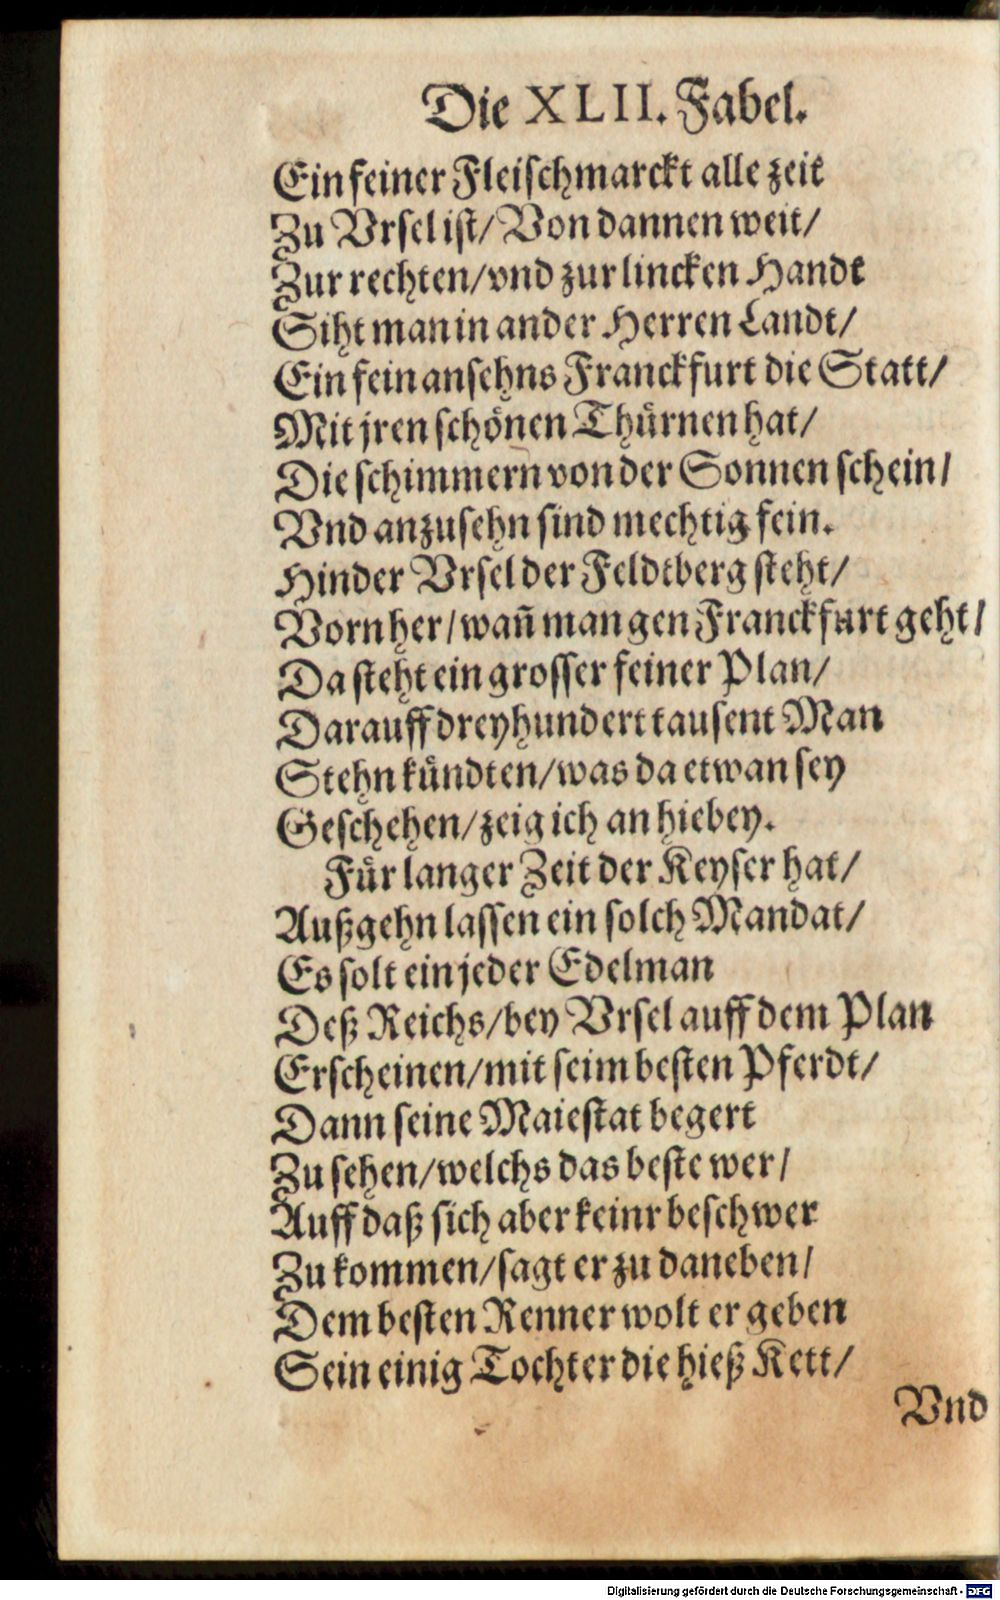 Die XLII. Fabel.
Ein feiner Fleischmarckt alle zeit
Zu Vrsel ist/ Von dannen weit/
Zur rechten/ vnd zur lincken Handt
Siht man in ander Herren Landt/
Ein fein ansehns Franckfurt die Statt/
Mit jren schönen Thürnen hat/
Die schimmern von der Sonnen schein/
Vnd anzusehn sind mechtig fein.
Hinder Vrsel der Feldtberg steht/
Vorn her/ wañ man gen Franckfurt geht/
Da steht ein grosser feiner Plan/
Darauff dreyhundert tausent Man
Stehn kündten/ was da etwan sey
Geschehen/ zeig ich an hiebey.
Für langer Zeit der Keyser hat/
Außgehn lassen ein solch Mandat/
Es solt ein jeder Edelman
Deß Reichs/ bey Vrsel auff dem Plan
Erscheinen/ mit seim besten Pferdt/
Dann seine Maiestat begert
Zu sehen/ welchs das beste wer/
Auff daß sich aber keinr beschwer
Zu kommen/ sagt er zu daneben/
Dem besten Renner wolt er geben
Sein einig Tochter die hieß Kett/
Vnd
Digitalisierung gefördert durch die Deutsche Forschungsgemeinschaft - DFG